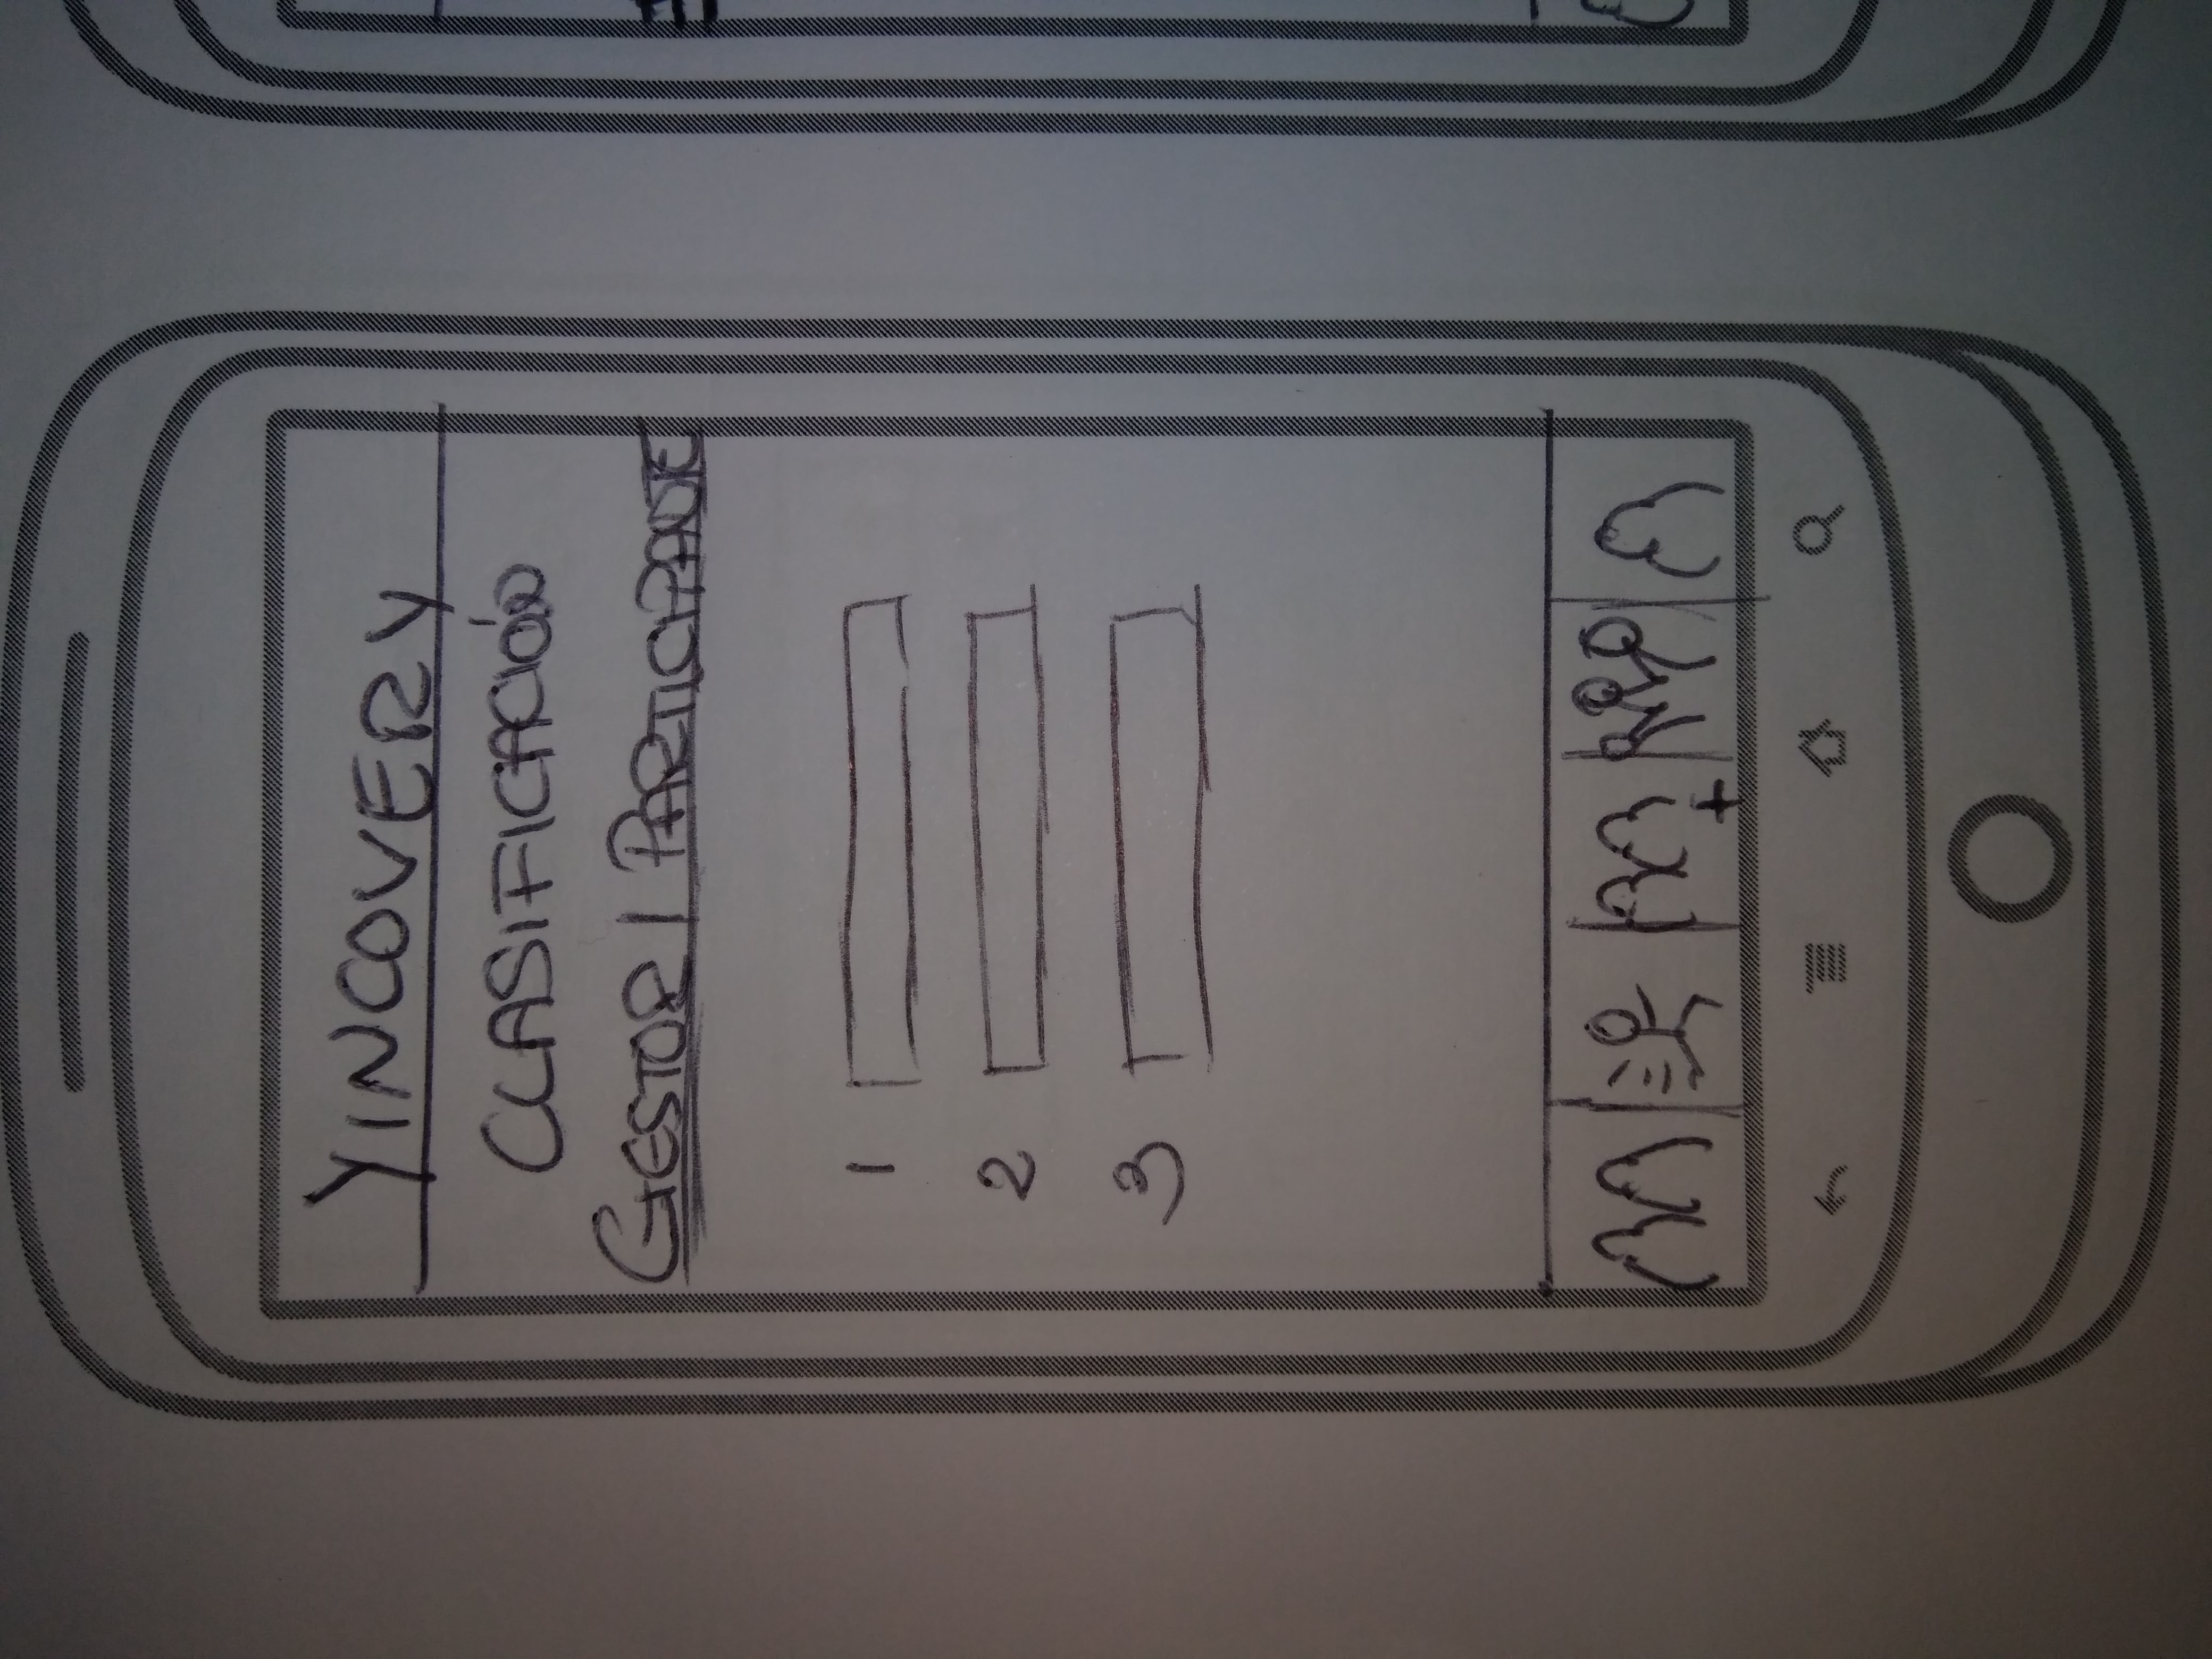 YINCOVERY
CLASIFICACIÓN
GESTOR | PARTICIPANTE
1
2
3
+